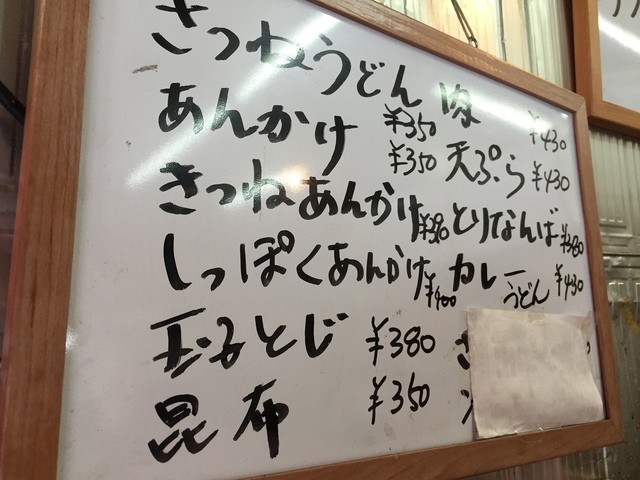 きつねうどん ¥350
あんかけ ¥350
きつねあんかけ
しっぽくあんかけ ¥400
玉子とじ ¥380
昆布 ¥350
肉 ¥430
天ぷら ¥430
とりなんば ¥380
カレーうどん ¥430